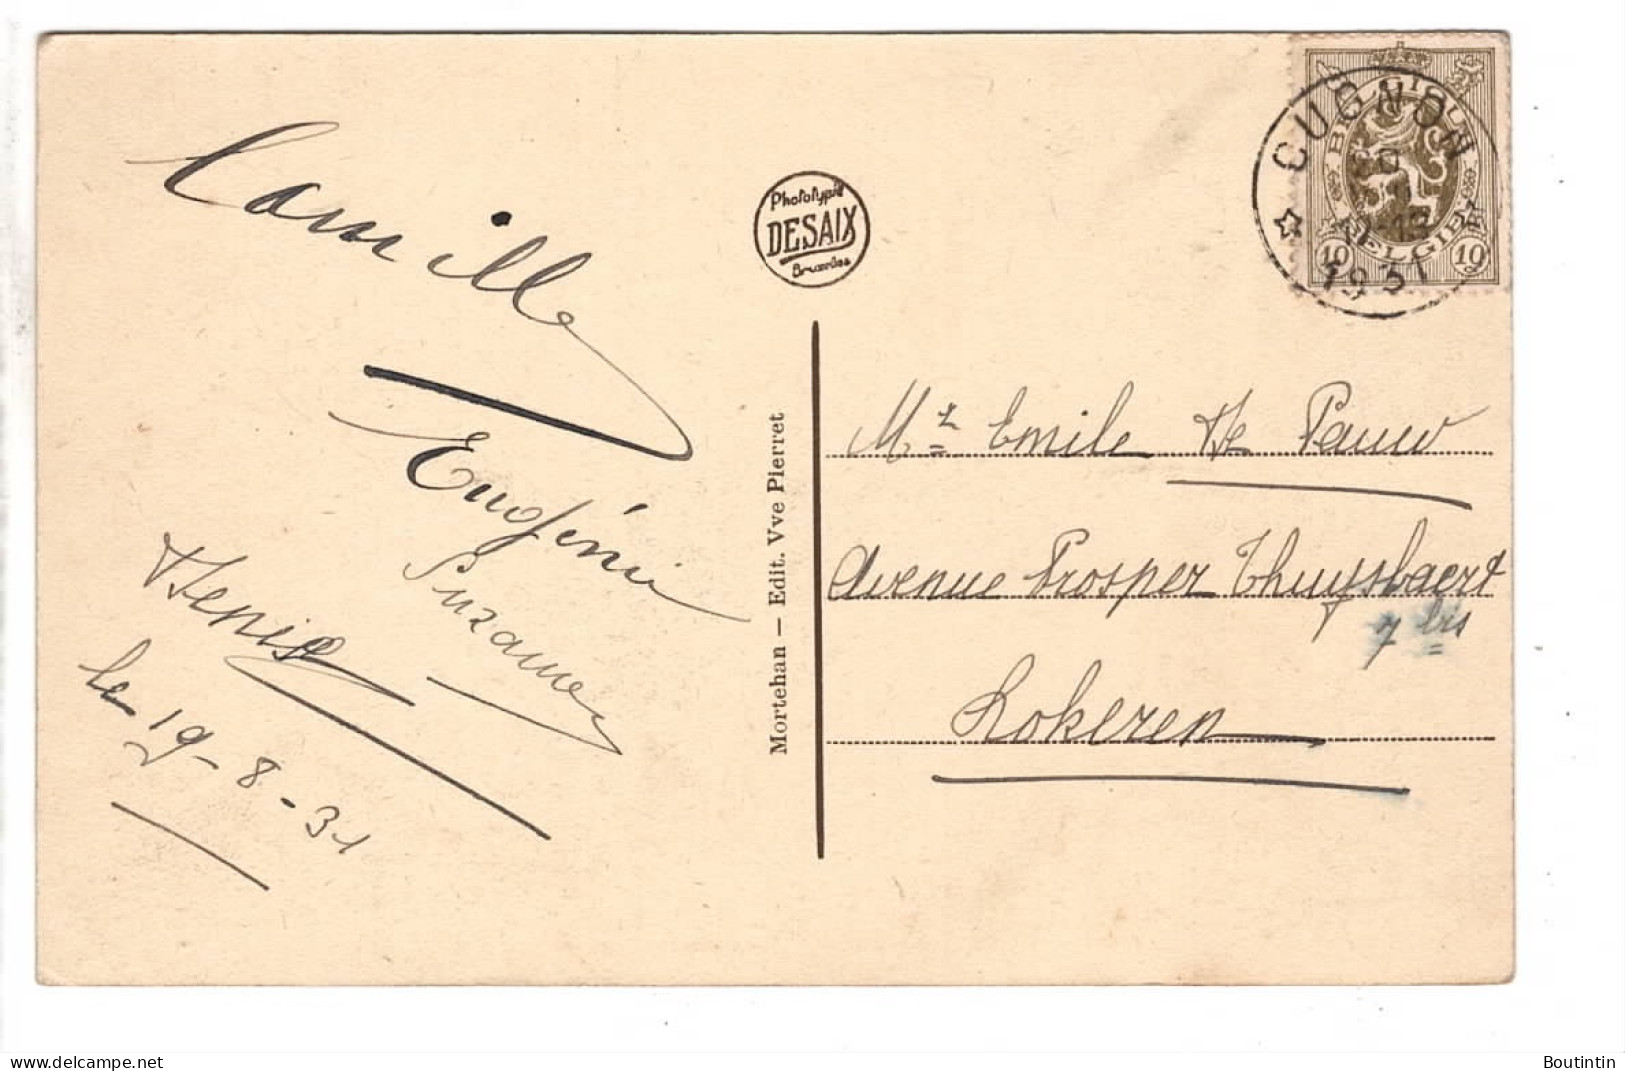 Camille
Eugénie
Suzanne
Denise
le 19-8-31
Phototypie
DESAIX
Bruxelles
Mortehan — Edit. Vve Pierret
BELGIQUE
BELGIE
10 10
CUGNON
1931
Mr Emile De Pauw
Avenue Prosper Thuysbaert
7 bis
Lokeren
www.delcampe.net
Boutintin